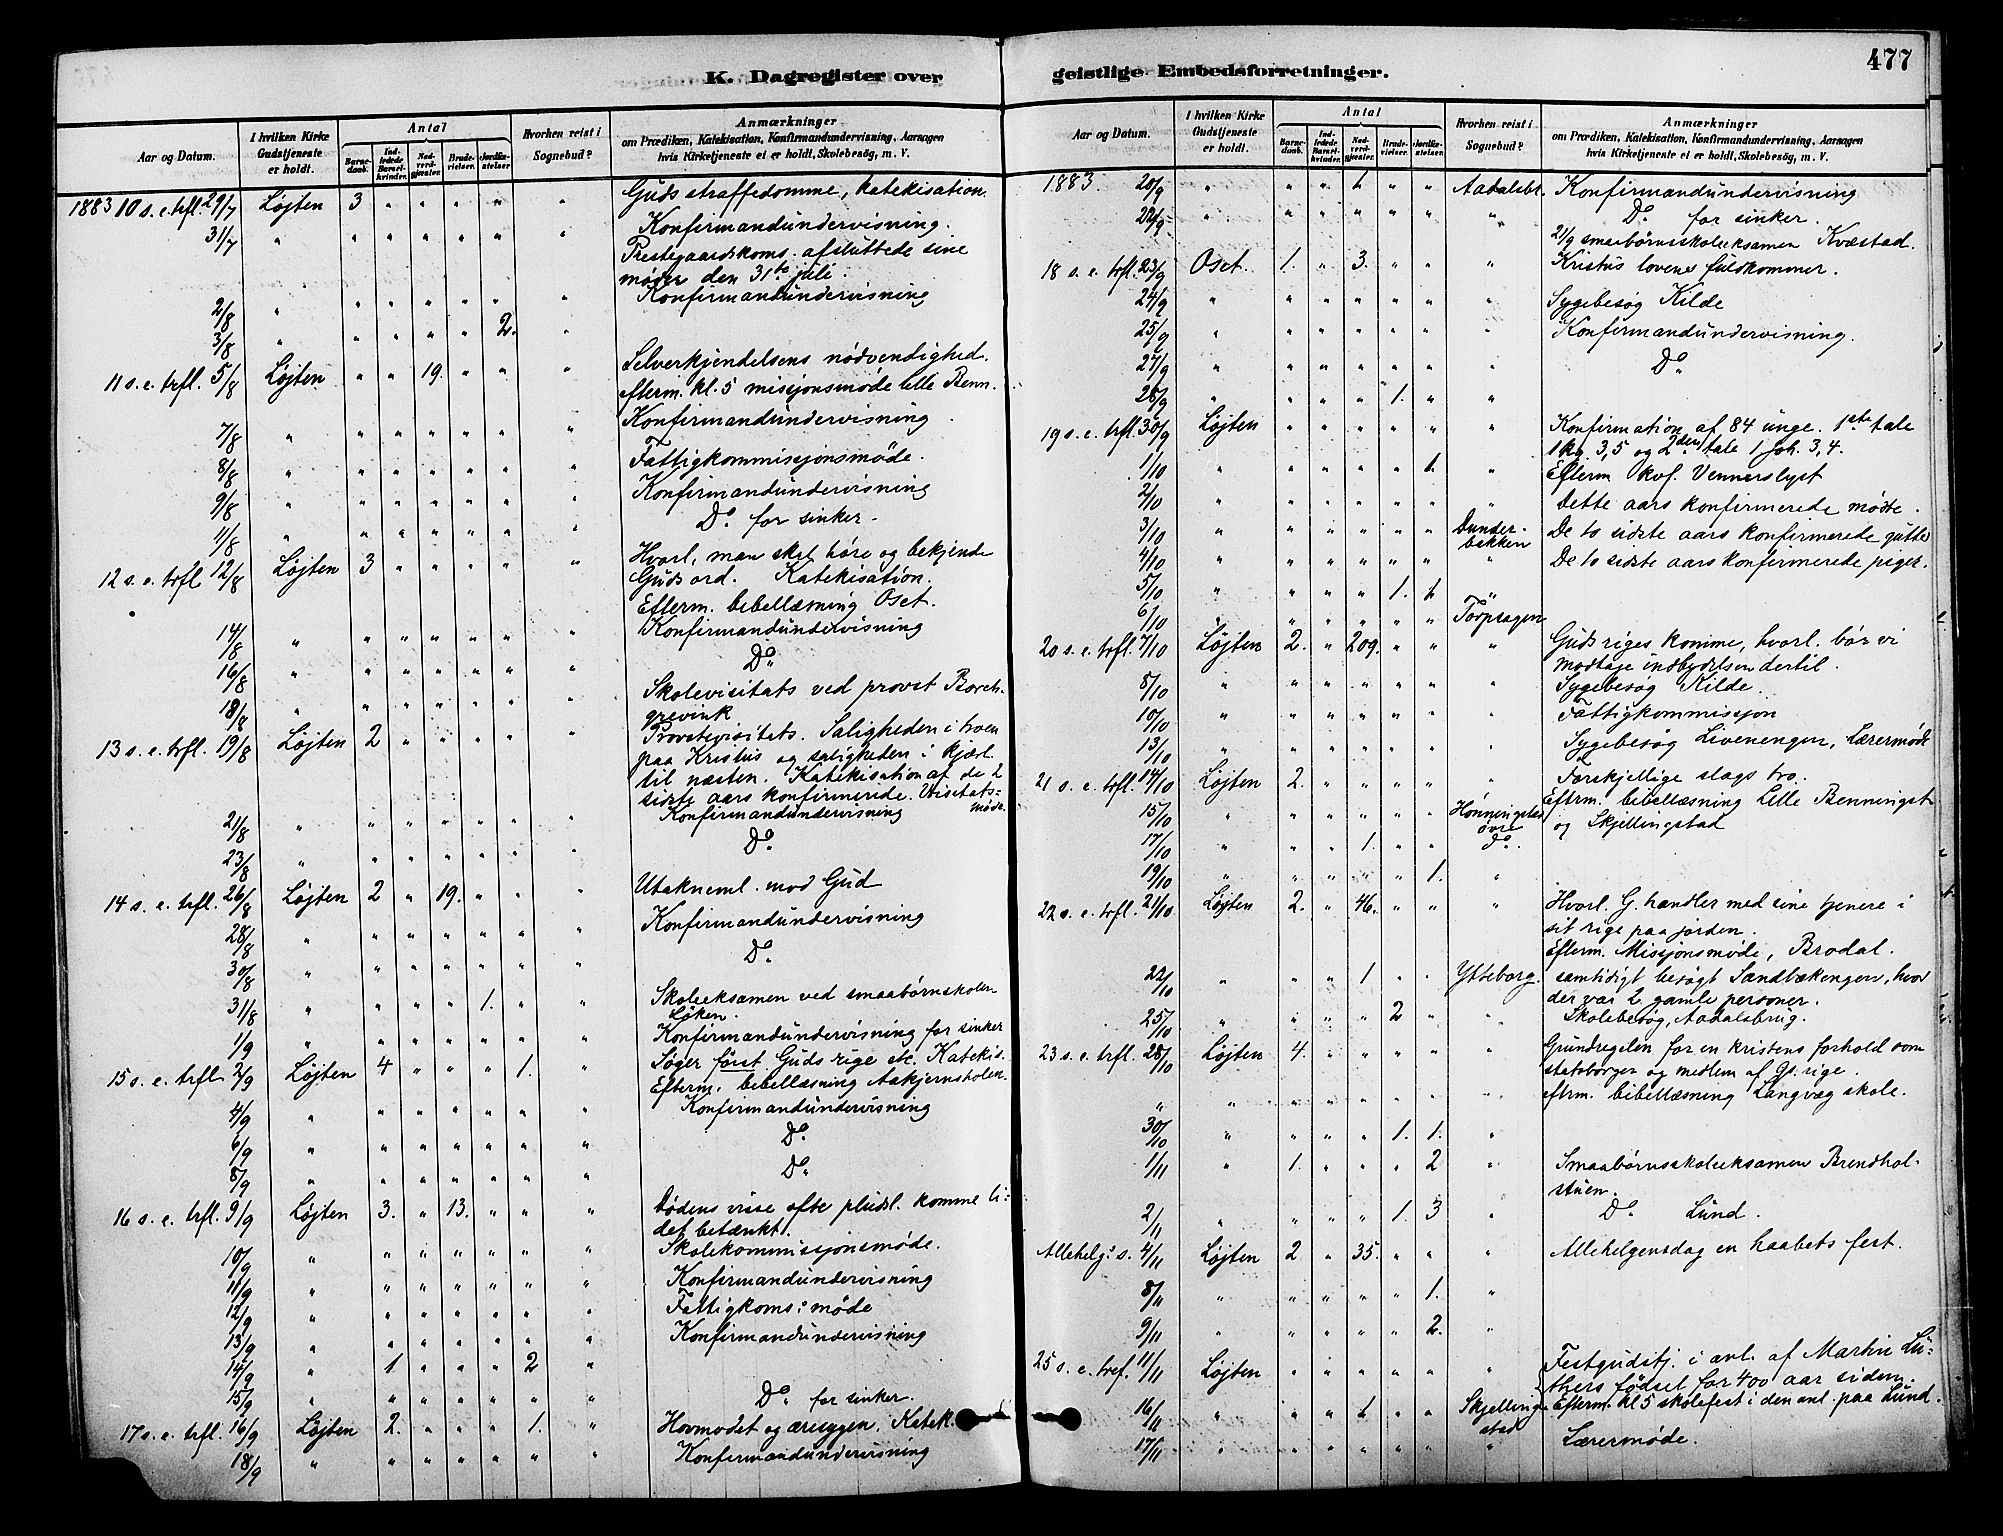 477
K. Dagregister over geistlige Embedsforretninger.
Aar og Datum.
I hvilken Kirke Gudstjeneste er holdt.
Antal
Barnedaab.
Indledede Barselkvinder.
Nadverdgjester.
Brudevielser.
Jordfæstelser.
Hvorhen reist i Sognebud?
Anmærkninger
om Prædiken, Katekisation, Konfirmandundervisning, Aarsagen
hvis Kirketjeneste ei er holdt, Skolebesög, m. V.
1883 10 s. e. trfl. 29/7 Løjten 3 " " " " " Guds straffedomme, katekisation.
31/7 " " " " " " " Konfirmandundervisning.
Prestegaardskoms. afsluttede sine
møder den 31te juli.
2/8 " " " " " " " Konfirmandundervisning
3/8 " " " " " 2. "
11 s. e. trfl. 5/8 Løjten " " 19. " " " Selverkjendelsens nødvendighed.
efterm. kl. 5 misjonsmøde lille Benn.
7/8 " " " " " " " Konfirmandundervisning.
8/8 " " " " " " " Fattigkommissjonsmøde.
9/8 " " " " " " " Konfirmandundervisning
11/8 " " " " " " " Do for sinker.
12 s. e. trfl 12/8 Løjten 3 " " " " " Hvorl. man skal høre og bekjende
Guds ord. Katekisation.
Efterm. bibellæsning Oset.
14/8 " " " " " " " Konfirmandundervisning
16/8 " " " " " " " Do
18/8 " " " " " " " Skolevisitats ved provst Borch-
grevink
13 s. e. trfl. 19/8 Løjten 2 " " " " " Provstevisitats. Saligheden i troen
paa Kristus og saligheden i kjærl.
til næsten. Katekisation af de 2
sidste aars konfirmerede. Visitats-
møde.
21/8 " " " " " " " Konfirmandundervisning
23/8 " " " " " " " Do
14 s. e. trfl. 26/8 Løjten 2 " 19. " " " Utakneml. mod Gud
28/8 " " " " " " " Konfirmandundervisning
30/8 " " " " " " " Do
31/8 " " " " " 1. " Skoleeksamen ved smaabørnskolen
Løken.
1/9 " " " " " " " Konfirmandundervisning for sinker
15 s. e. trfl 2/9 Løjten 4 " " " 1. " Søger først Guds rige etc. Katekis.
Efterm. bibellæsning Aakjernsholen.
4/9 " " " " " " " Konfirmandundervisning
6/9 " " " " " " " Do
8/9 " " " " " " " Do
16 s. e. trfl. 9/9 Løjten 3. " 13. " " " Dødens visse ofte pludsl. komme li-
det betænkt.
10/9 " " " " " " " Skolekommissjonsmøde.
11/9 " " " " " " " Konfirmandundervisning
12/9 " " " " " " " Fattigkoms: møde
13/9 " " " " " " " Konfirmandundervisning
14/9 " 1. " " " 2 "
15/9 " " " " " " " Do for sinker.
17 s. e. trfl. 16/9 Løjten 2. " " " 1. " Hovmodet og æresygen. Katek.
18/9 " " " " " " " Konfirmandundervisning
Aar og Datum.
I hvilken Kirke Gudstjeneste er holdt.
Antal
Barnedaab.
Indledede Barselkvinder.
Nadverdgjester.
Brudevielser.
Jordfæstelser.
Hvorhen reist i Sognebud?
Anmærkninger
om Prædiken, Katekisation, Konfirmandundervisning, Aarsagen
hvis Kirketjeneste ei er holdt, Skolebesög, m. V.
1883. 20/9 " " " 1 " " Aadalsbr. Konfirmandundervisning
22/9 " " " " " " " Do for sinker.
21/9 smaabørnsskoleeksamen Kvæstad.
18 s. e. trfl. 23/9 Oset. 1. " 3. " " " Kristus lovens fuldkommer.
24/9 " " " " " " " Sygebesøg Kilde
25/9 " " " " " " " Konfirmandundervisning.
27/9 " " " " " " " Do
28/9 " " " " 1. " "
19 s. e. trfl. 30/9 Løjten " " " " " " Konfirmation af 84 unge. 1ste tale
1 kg. 3,5 og 2den tale 1 Joh. 3,4.
1/10 " " " " " 1 " Efterm kvf. Vennerslyst
2/10 " " " " " " " Dette aars konfirmerede mødte.
3/10 " " " " " " Dunder-
bekken De to sidste aars konfirmerede gutter
4/10 " " " " " " " De to sidste aars konfirmerede piger.
5/10 " " " " 1. 1 "
6/10 " " " " " " Torpsagen
20 s. e. trfl. 7/10 Løjten 2. " 209. " " " Guds riges komme, hvorl. bør vi
modtage indbydelsen dertil.
8/10 " " " " " " " Sygebesøg Kilde.
10/10 " " " " " " " Fattigkommissjon
13/10 " " " " " " " Sygebesøg Livenengen, Lærermøde
21 s. e. trfl. 14/10 Løjten 2. " " " " " Forskjellige slags tro.
Efterm. bibellæsning Lille Benningst.
og Skjellingstad
15/10 " " " " " " Hønningstad
øvre
17/10 " " " 1. " " Do.
19/10 " " " " " 1. "
22 s. e. trfl. 21/10 Løjten 2. " 46. " " " Hvorl. G. handler med sine tjenere i
sit rige paa jorden.
Efterm. Missjonsmøde, Brodal.
22/10 " " " 1 " " Ytteborg. samtidigt besøgt Sandbækengen, hvor
der var 2 gamle personer.
25/10 " " " " 2 " " Skolebesøg, Aadalsbrug.
23 s. e. trfl. 28/10 Løjten 4. " " " " " Grundregelen for en kristens forhold som
statsborger og medlem af Gs. rige.
" " " " " " " " efterm. bibellæsning Langvæg skole.
30/10 " " " " 1. 1. "
1/11 " 1. " " " 2 " Smaabørnsskoleeksamen Brendhol-
stuen.
2/11 " " " " 1. 3 " Do Lund.
Allehelg: s. 4/11 Løjten 2 " 35. " " " Allehelgensdag en haabets fest.
8/11 " " " " " 1. "
9/11 " " " " " 2. "
25 s. e. tref. 11/11 Løjten " " " " " " Festgudstj. i anl. af Martin Lu-
thers fødsel for 400 aar siden.
Efterm. kl 5 skolefest i den anl. paa Lund.
16/11 " " " 1 " " Skjelling-
stad
17/11 " " " " " " " Lærermøde.